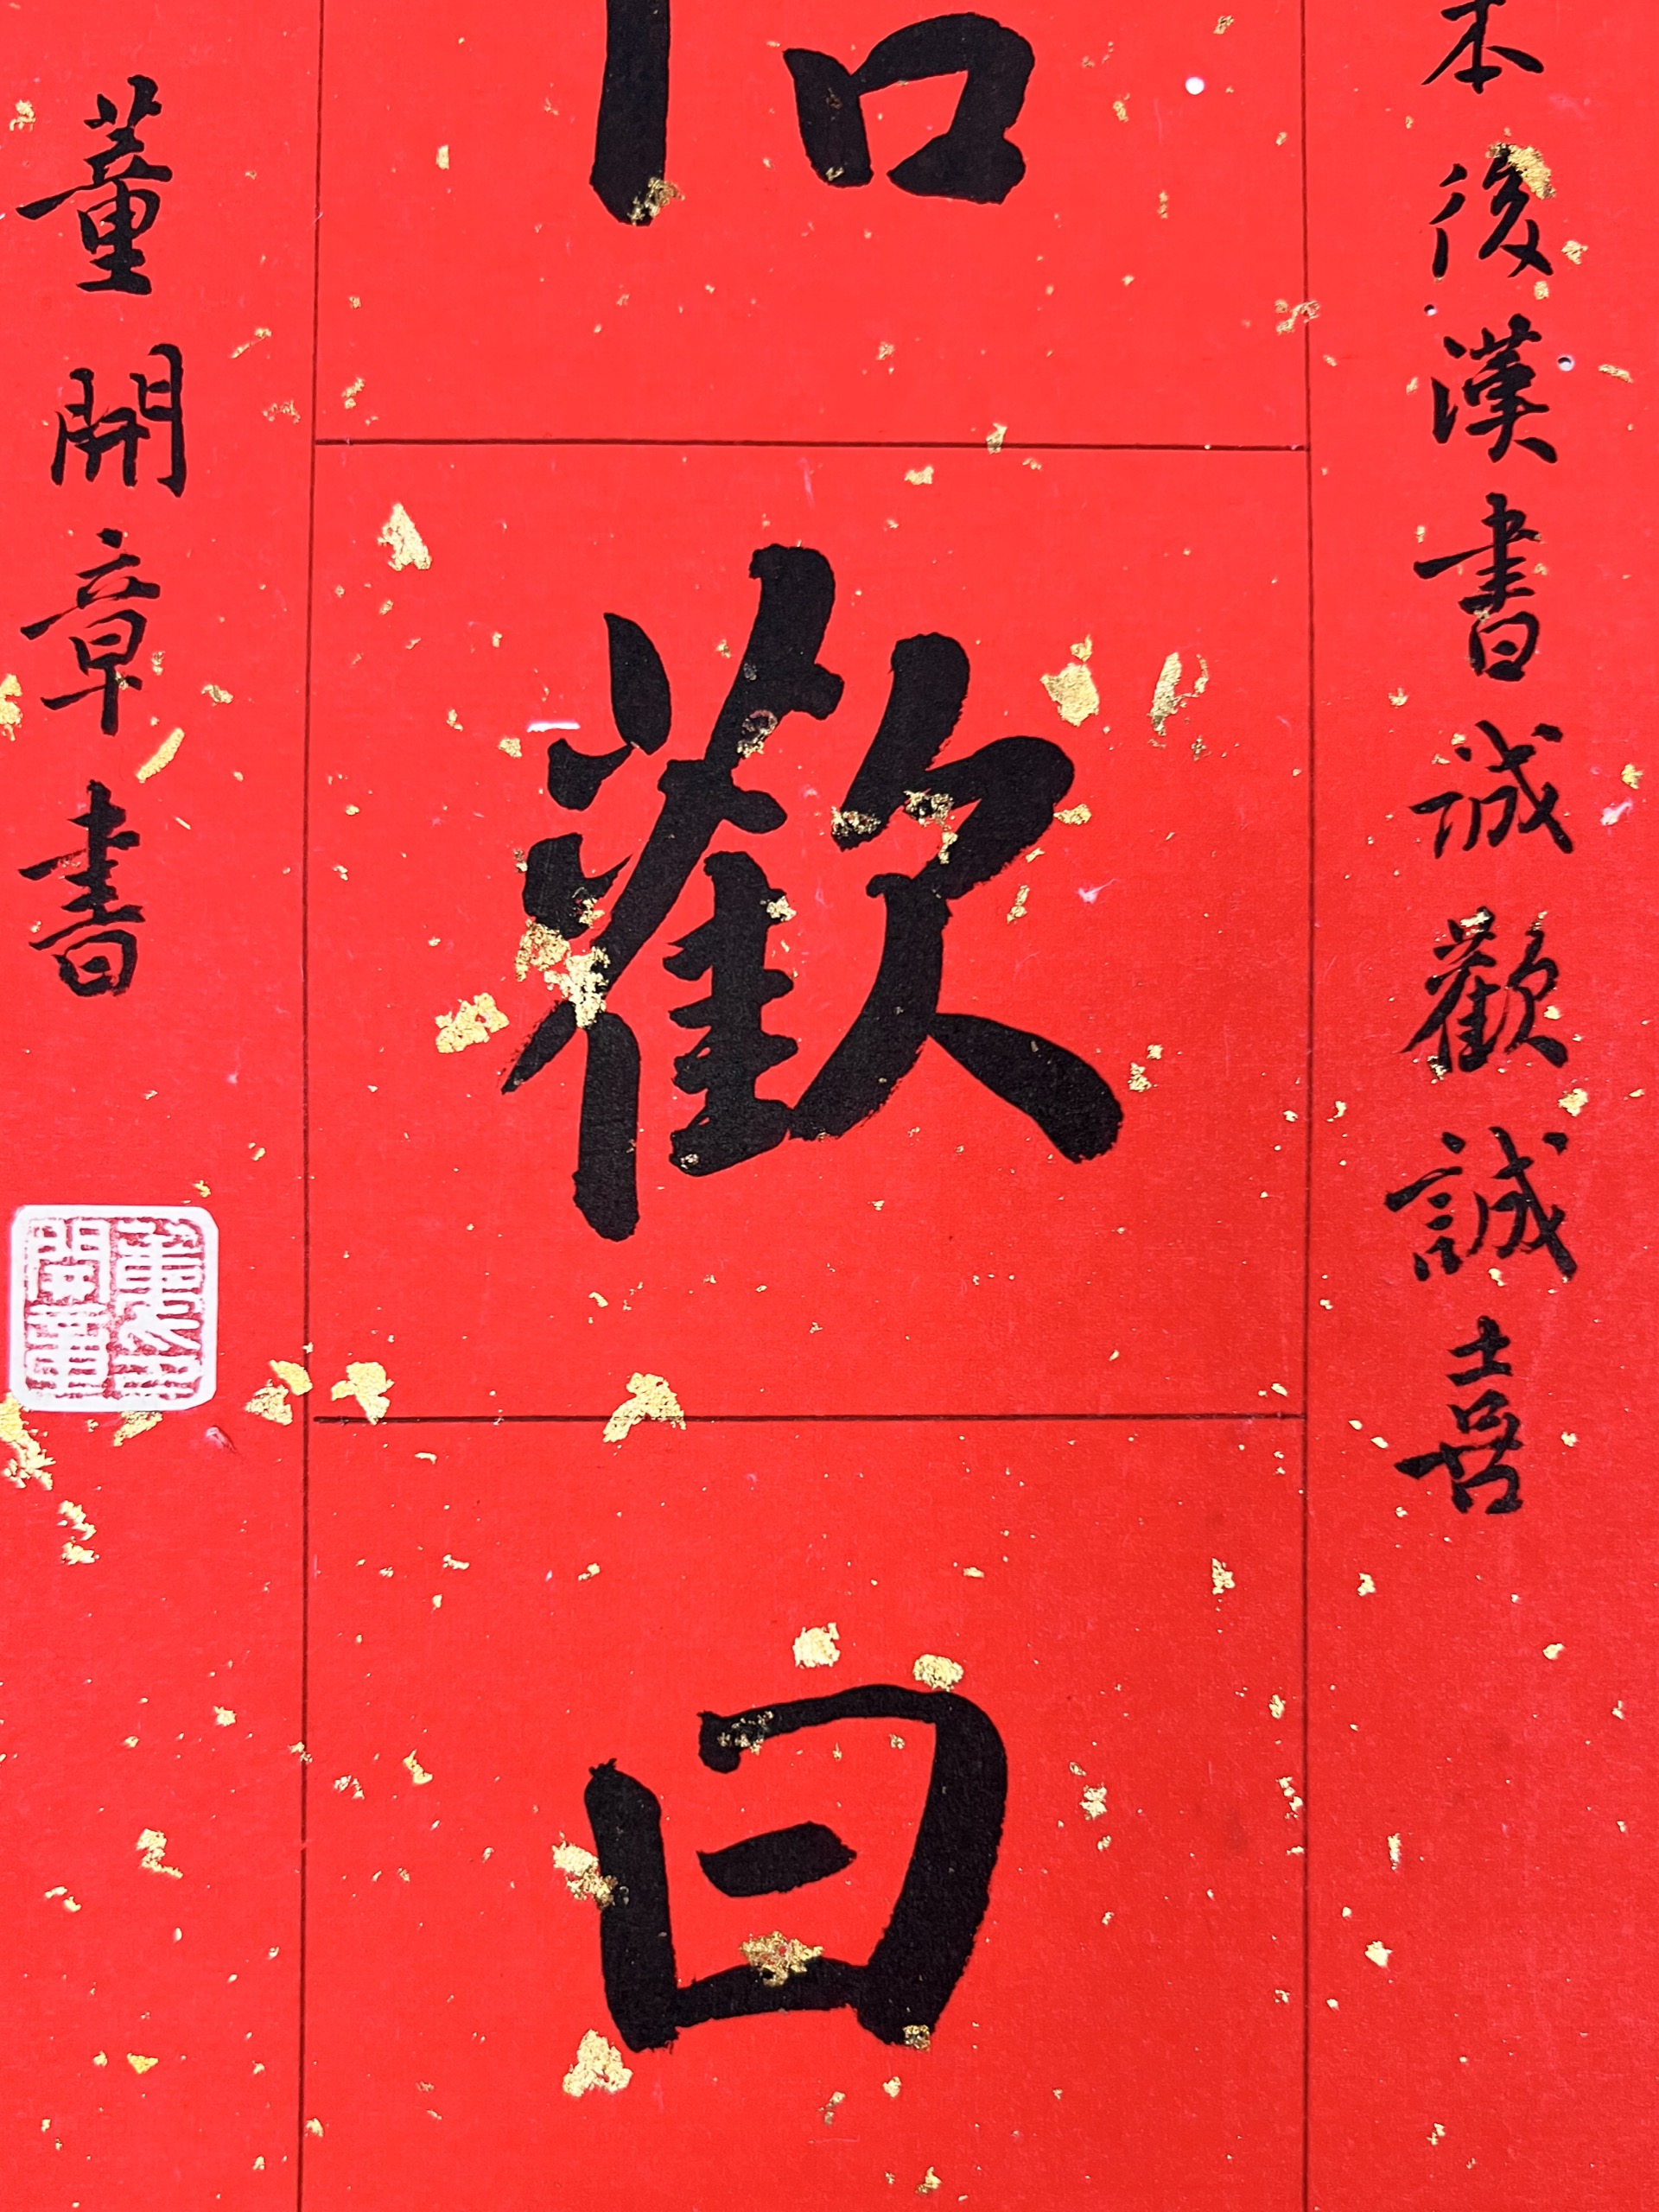 本後漢書誠歡誠喜
歡日
董開章書
董印開章